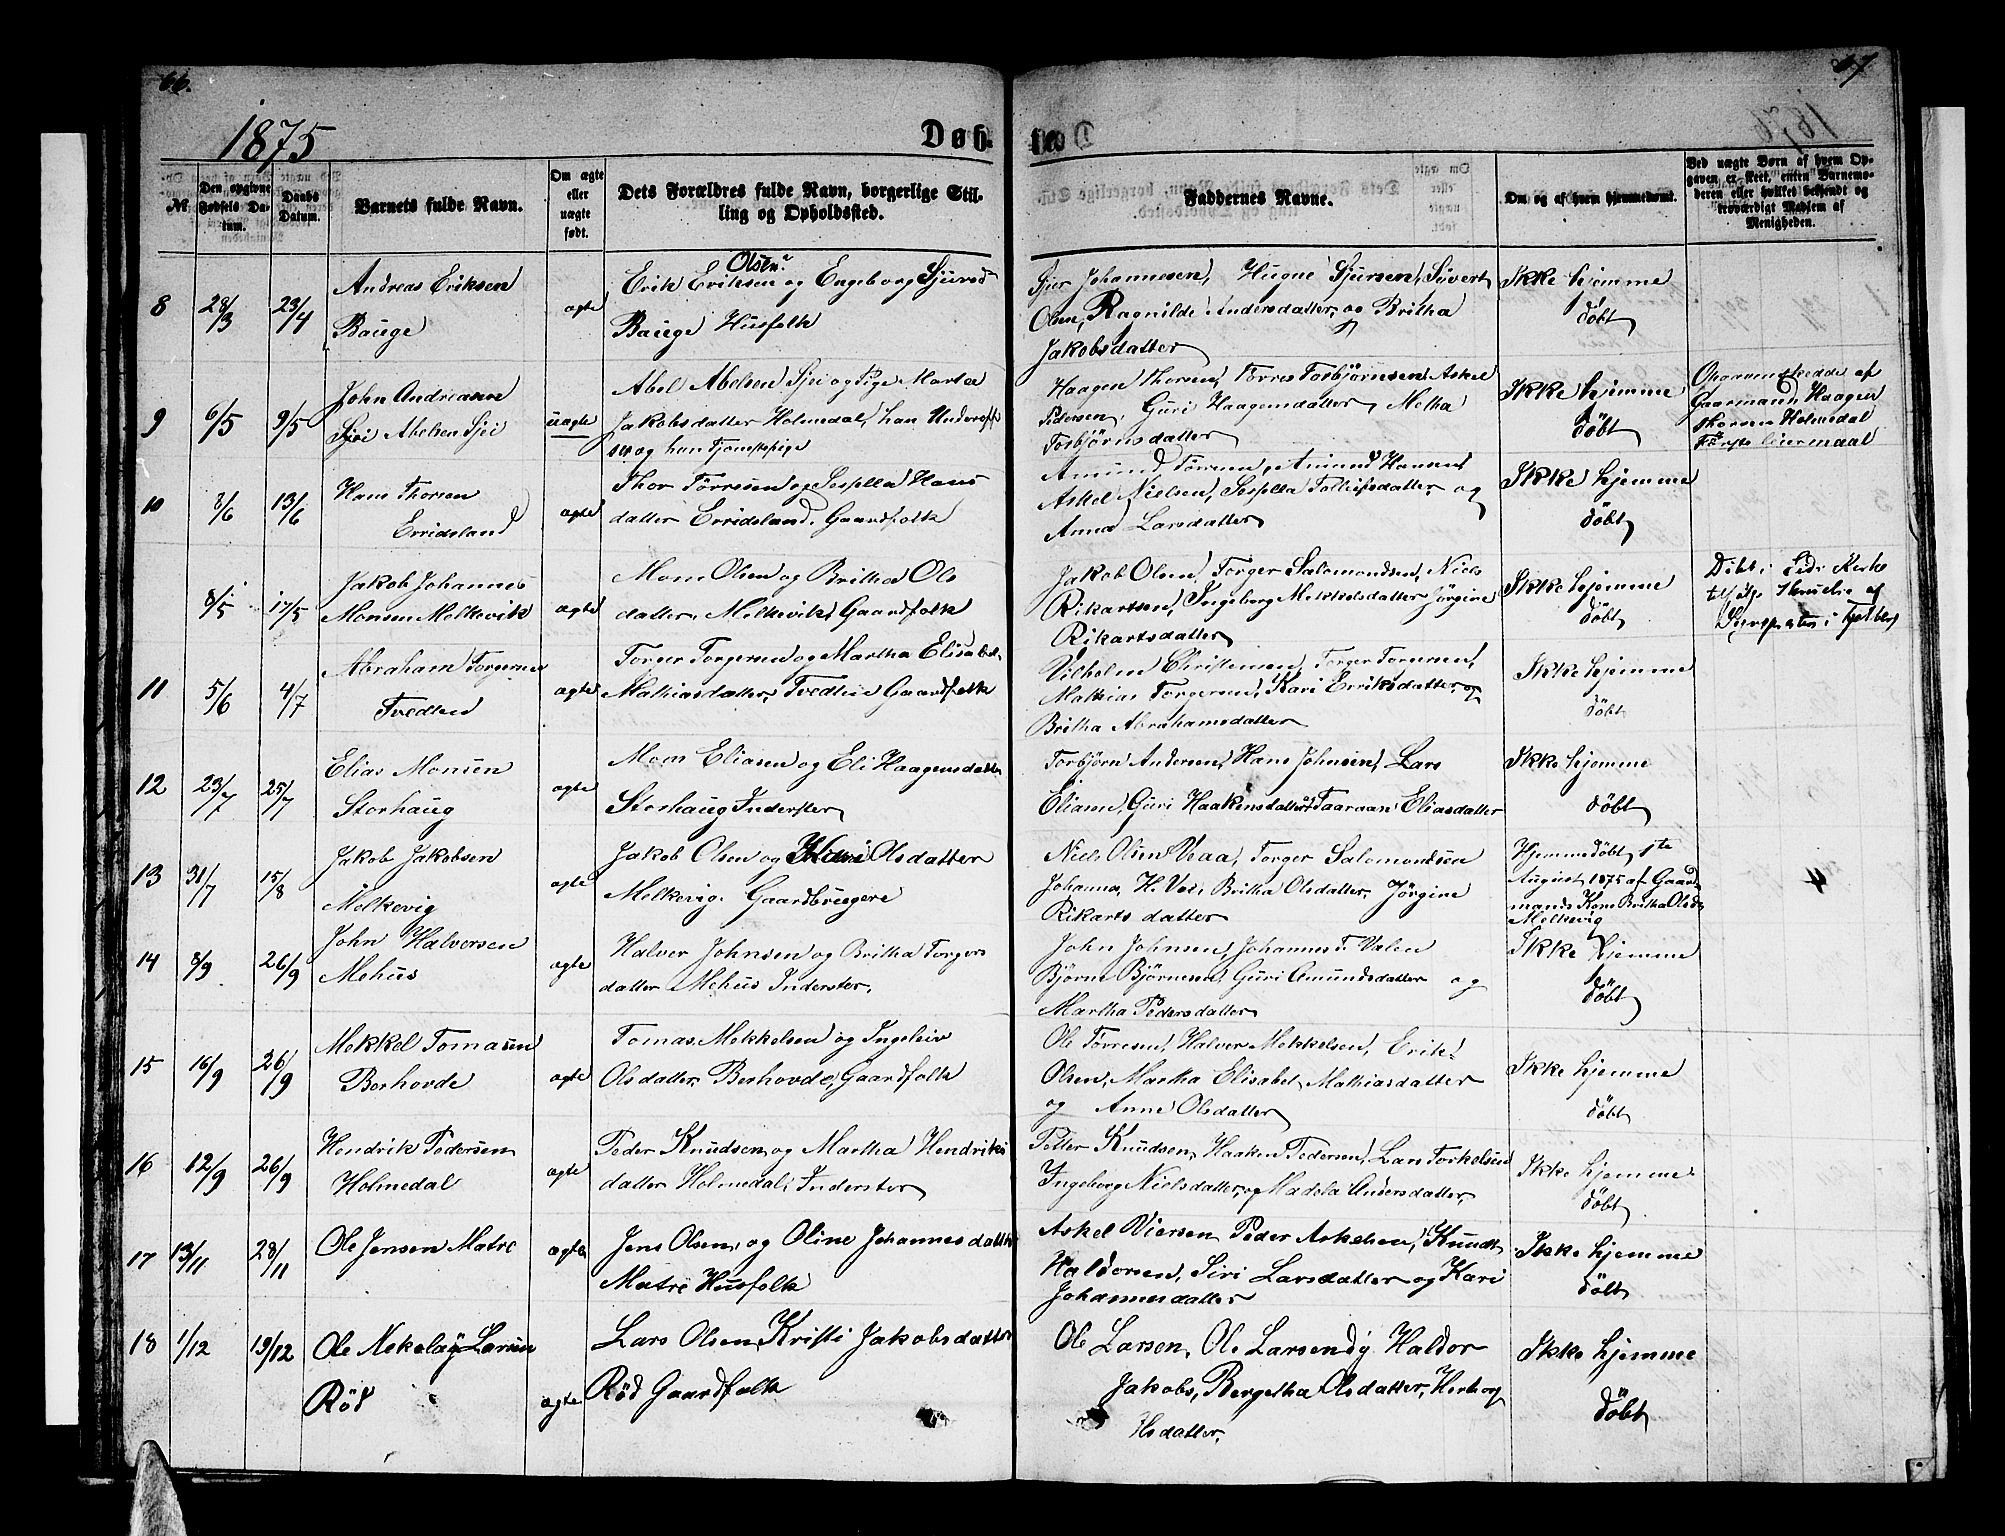 66.
1875
Døb
te.
67.
№
Den opgivne Fødsels Datum.
Daabs Datum.
Barnets fulde Navn.
Om ægte eller uægte født.
Dets Forældres fulde Navn, borgerlige Stilling og Opholdssted.
Faddernes Navne.
Om og af hvem hjemmedøbt.
Ved uægte Børn af hvem Opgaven er skeet, enten Barnemoderen eller hvilket bekjendt og troværdigt Medlem af Menigheden.
8 28/3 23/4
Andreas Eriksen
Bauge
ægte
Olsen
Erik Eriksen og Engeborg Sjursd
Bauge Husfolk
Sjur Johannesen, Hugne Sjursen, Sivert
Olsen, Ragnilde Andersdatter og Britha
Jakobsdatter
Ikke hjemme
døbt
9 6/5 9/5
John Andreasen
Sjøi Abelsen Sjei
uægte
Abel Abelsen Sjei og Pige Marta
Jakobsdatter Holmedal, han Underoff
ser og hun Tjenestepige
Haagen Thorsen, Torres Torbjørnsen, Askel
Pedersen, Guri Haagensdatter, Metha
Torbjørnsdatter
Ikke hjemme
døbt
af
Gaarmand Haagen
Thorsen Holmedal
10 8/6 13/6
Hans Thorsen
Erridsland
ægte
Thor Tørresen og Sesella Hans
datter Erridsland, Gaardfolk
Amund Tørresen, Amund Hansen
Askel Nielsen, Sesella Tolleifsdatter og
Anna Larsdatter
Ikke hjemme
døbt
8/5 17/5
Jakob Johannes
Monsen Melkevik
ægte
Mons Olsen og Britha Ols
datter, Melkevik, Gaardfolk
Jakob Olsen, Torger Salomondsen, Niels
Rikartsen, Ingeborg Mekkelsdatter Jørgine
Rikartsdatter
Ikke hjemme
døbt
Døbt i Kirke
af
i
11 5/6 4/7
Abraham Torgersen
Tvedten
ægte
Torger Torgersen og Martha Elisabet
Mathiasdatter, Tvedten Gaardfolk
Vilhelm Christensen, Torger Torgersen,
Mathias Torgersen, Kari Erriksdatter og
Britha Abrahamsdatter
Ikke hjemme
døbt
12 23/7 25/7
Elias Monsen
Storhaug
ægte
Mons Eliasen og Eli Haagensdatter
Storhaug Inderster
Torbjørn Andersen, Hans Johnsen, Lars
Eliasen, Guri Haakensdatter Taaraan Eliasdatter
Ikke hjemme
døbt
13 31/7 15/8
Jakob Jakobsen
Melkevig
ægte
Jakob Olsen og Olsdatter
Melkevig. Gaardbrugere
Niels Olsen Vaa, Torger Salomondsen
Johannes H. Vae, Britha Olsdatter, Jørgine
Rikarts datter
Hjemmedøbt 1te
August 1875 af Gaard
mands Kone Britha Olsd.
Melkevig
4
14 8/9 26/9
John Halversen
Mehus
ægte
Halver Johnsen og Britha Torgers
datter Mehus Inderster.
John Johnsen, Johannes T. Valen
Bjørne Bjørnesen, Guri Amundsdatter og
Martha Pedersdatter
Ikke hjemme
døbt
15 16/9 26/9
Mekkel Tomasen
Berhovde
ægte
Tomas Mekkelsen og Ingeleiv
Olsdatter, Berhovde, Gaardfolk
Ole Tørresen, Halver Mekkelsen, Erik
Olsen, Martha Elisabet Mathiasdatter
og Anne Olsdatter
Ikke hjemme
døbt
16 12/9 26/9
Hendrik Pedersen
Holmedal
ægte
Peder Knudsen og Martha Hendriks
datter Holmedal, Inderster
Petter Knudsen, Haaken Pedersen, Lars Torkelsen
Ingeborg Nielsdatter og Madela Andersdatter,
Ikke hjemme
døbt
17 13/11 28/11
Ole Jensen Matre
ægte
Jens Olsen, og Oline Johannesdatter
Matre Husfolk
Askel Viersen Peder Askelsen, Knudt
Haldorsen, Siri Larsdatter og Kari
Johannesdatter
Ikke hjemme
døbt
18 1/12 19/12
Ole Nekolay Larsen
Rød
ægte
Lars Olsen, Kristi Jakobsdatter
Rød Gaardfolk
Ole Larsen, Ole Larsen dy Haldor
Jakobs, Bergetha Olsdatter, Herborg
Hsdatter,
Ikke hjemme
døbt